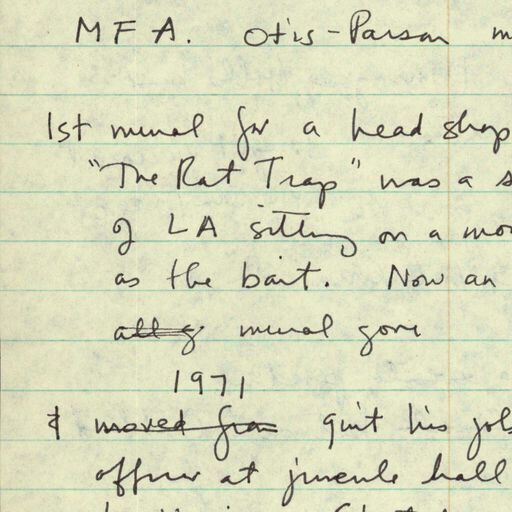 MFA. Otis-Parson m
1st mural for a head shop
"The Rat Trap" was a s
of LA sitting on a mo
as the bait. Now an
all of mural gone
1971
& moved from quit his job
officer at juvenile hall